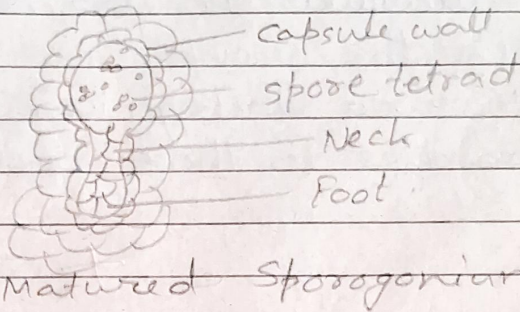 capsule wall
spore tetrad
Neck
Foot
Matured Sporogonium